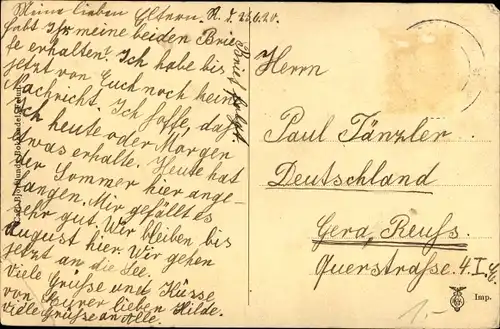 Meine lieben Eltern. N. d. 25.6.20.
Habt Ihr meine beiden Brie-
fe erhalten? Ich habe bis
jetzt von Euch noch keine
Nachricht. Ich hoffe, daß
ich heute oder Morgen
etwas erhalte. Heute hat
der Sommer hier ange-
fangen. Mir gefällt es
sehr gut. Wir bleiben bis
August hier. Wir gehen
jetzt an die See.
Viele Grüße und Küsse
von Eurer lieben Hilde.
Viele Grüße an Alle.
Brief folgt.
Herrn
Paul Tänzler
Deutschland
Gera, Reuß.
Querstraße. 4. I.
Imp.
1.-